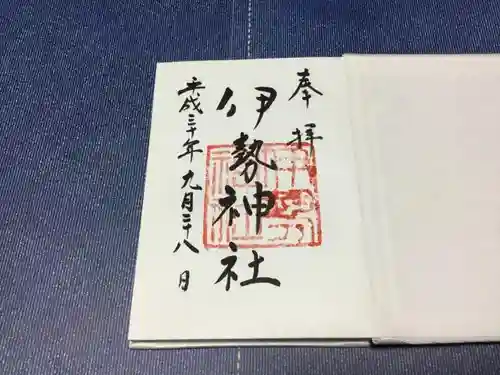 奉拝
伊勢神社
平成三十年九月二十八日